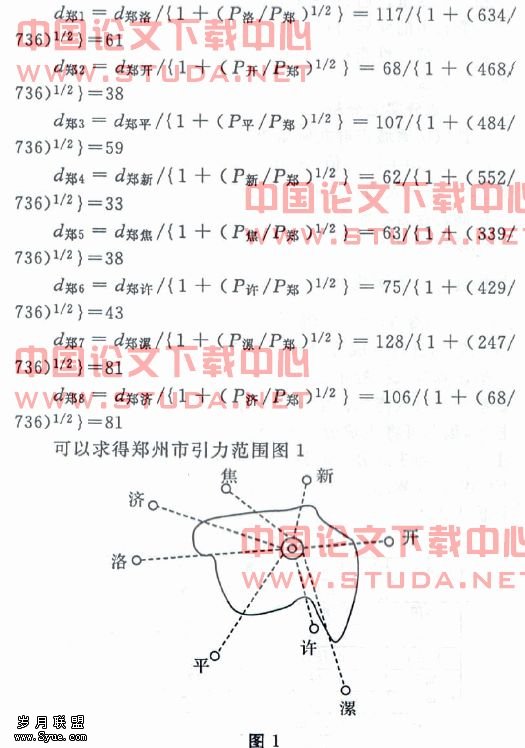 d郑1 = d郑洛/{1 + (P洛/P郑)1/2} = 117/{1 + (634/
736)1/2}=61
d郑2 = d郑开/{1 + (P开/P郑)1/2} = 68/{1 + (468/
736)1/2}=38
d郑3 = d郑平/{1 + (P平/P郑)1/2} = 107/{1 + (484/
736)1/2}=59
d郑4 = d郑新/{1 + (P新/P郑)1/2} = 62/{1 + (552/
736)1/2}=33
d郑5 = d郑焦/{1 + (P焦/P郑)1/2} = 63/{1 + (339/
736)1/2}=38
d郑6 = d郑许/{1 + (P许/P郑)1/2} = 75/{1 + (429/
736)1/2}=43
d郑7 = d郑漯/{1 + (P漯/P郑)1/2} = 128/{1 + (247/
736)1/2}=81
d郑8 = d郑济/{1 + (P济/P郑)1/2} = 106/{1 + (68/
736)1/2}=81
可以求得郑州市引力范围图 1
焦
新
济
开
洛
许
平
漯
图 1
中国论文下载中心
WWW.STUDA.NET
中国论文下载中心
WWW.STUDA.NET
中国论文下载中心
WWW.STUDA.NET
中国论文下载中心
WWW.STUDA.NET
岁月联盟
www.5yue.com